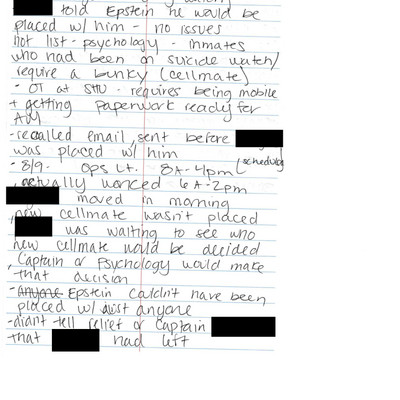 told Epstein he would be
placed w/ him - no issues
hot list - psychology - inmates
who had been on suicide watch/
require a bunky (cellmate)
- OT at SHU - requires being mobile
+ getting paperwork ready for
AM
- recalled email sent before
was placed w/ him (scheduled)
- 8/9 - Ops Lt. 8A-4pm
, actually worked 6A-2pm
moved in morning
, new cellmate wasn't placed
, was waiting to see who
new cellmate would be decided
, Captain or Psychology would make
that decision
- Anyone Epstein couldn't have been
placed w/ just anyone
- didn't tell relief or Captain
that had left